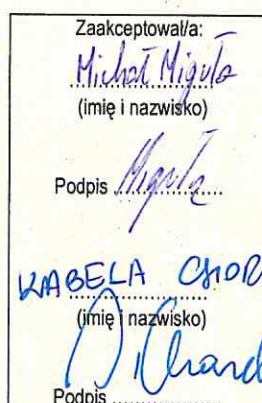 Zaakceptował/a:
Michał Miguła
(imię i nazwisko)
Podpis Miguła
(imię i nazwisko)
Podpis